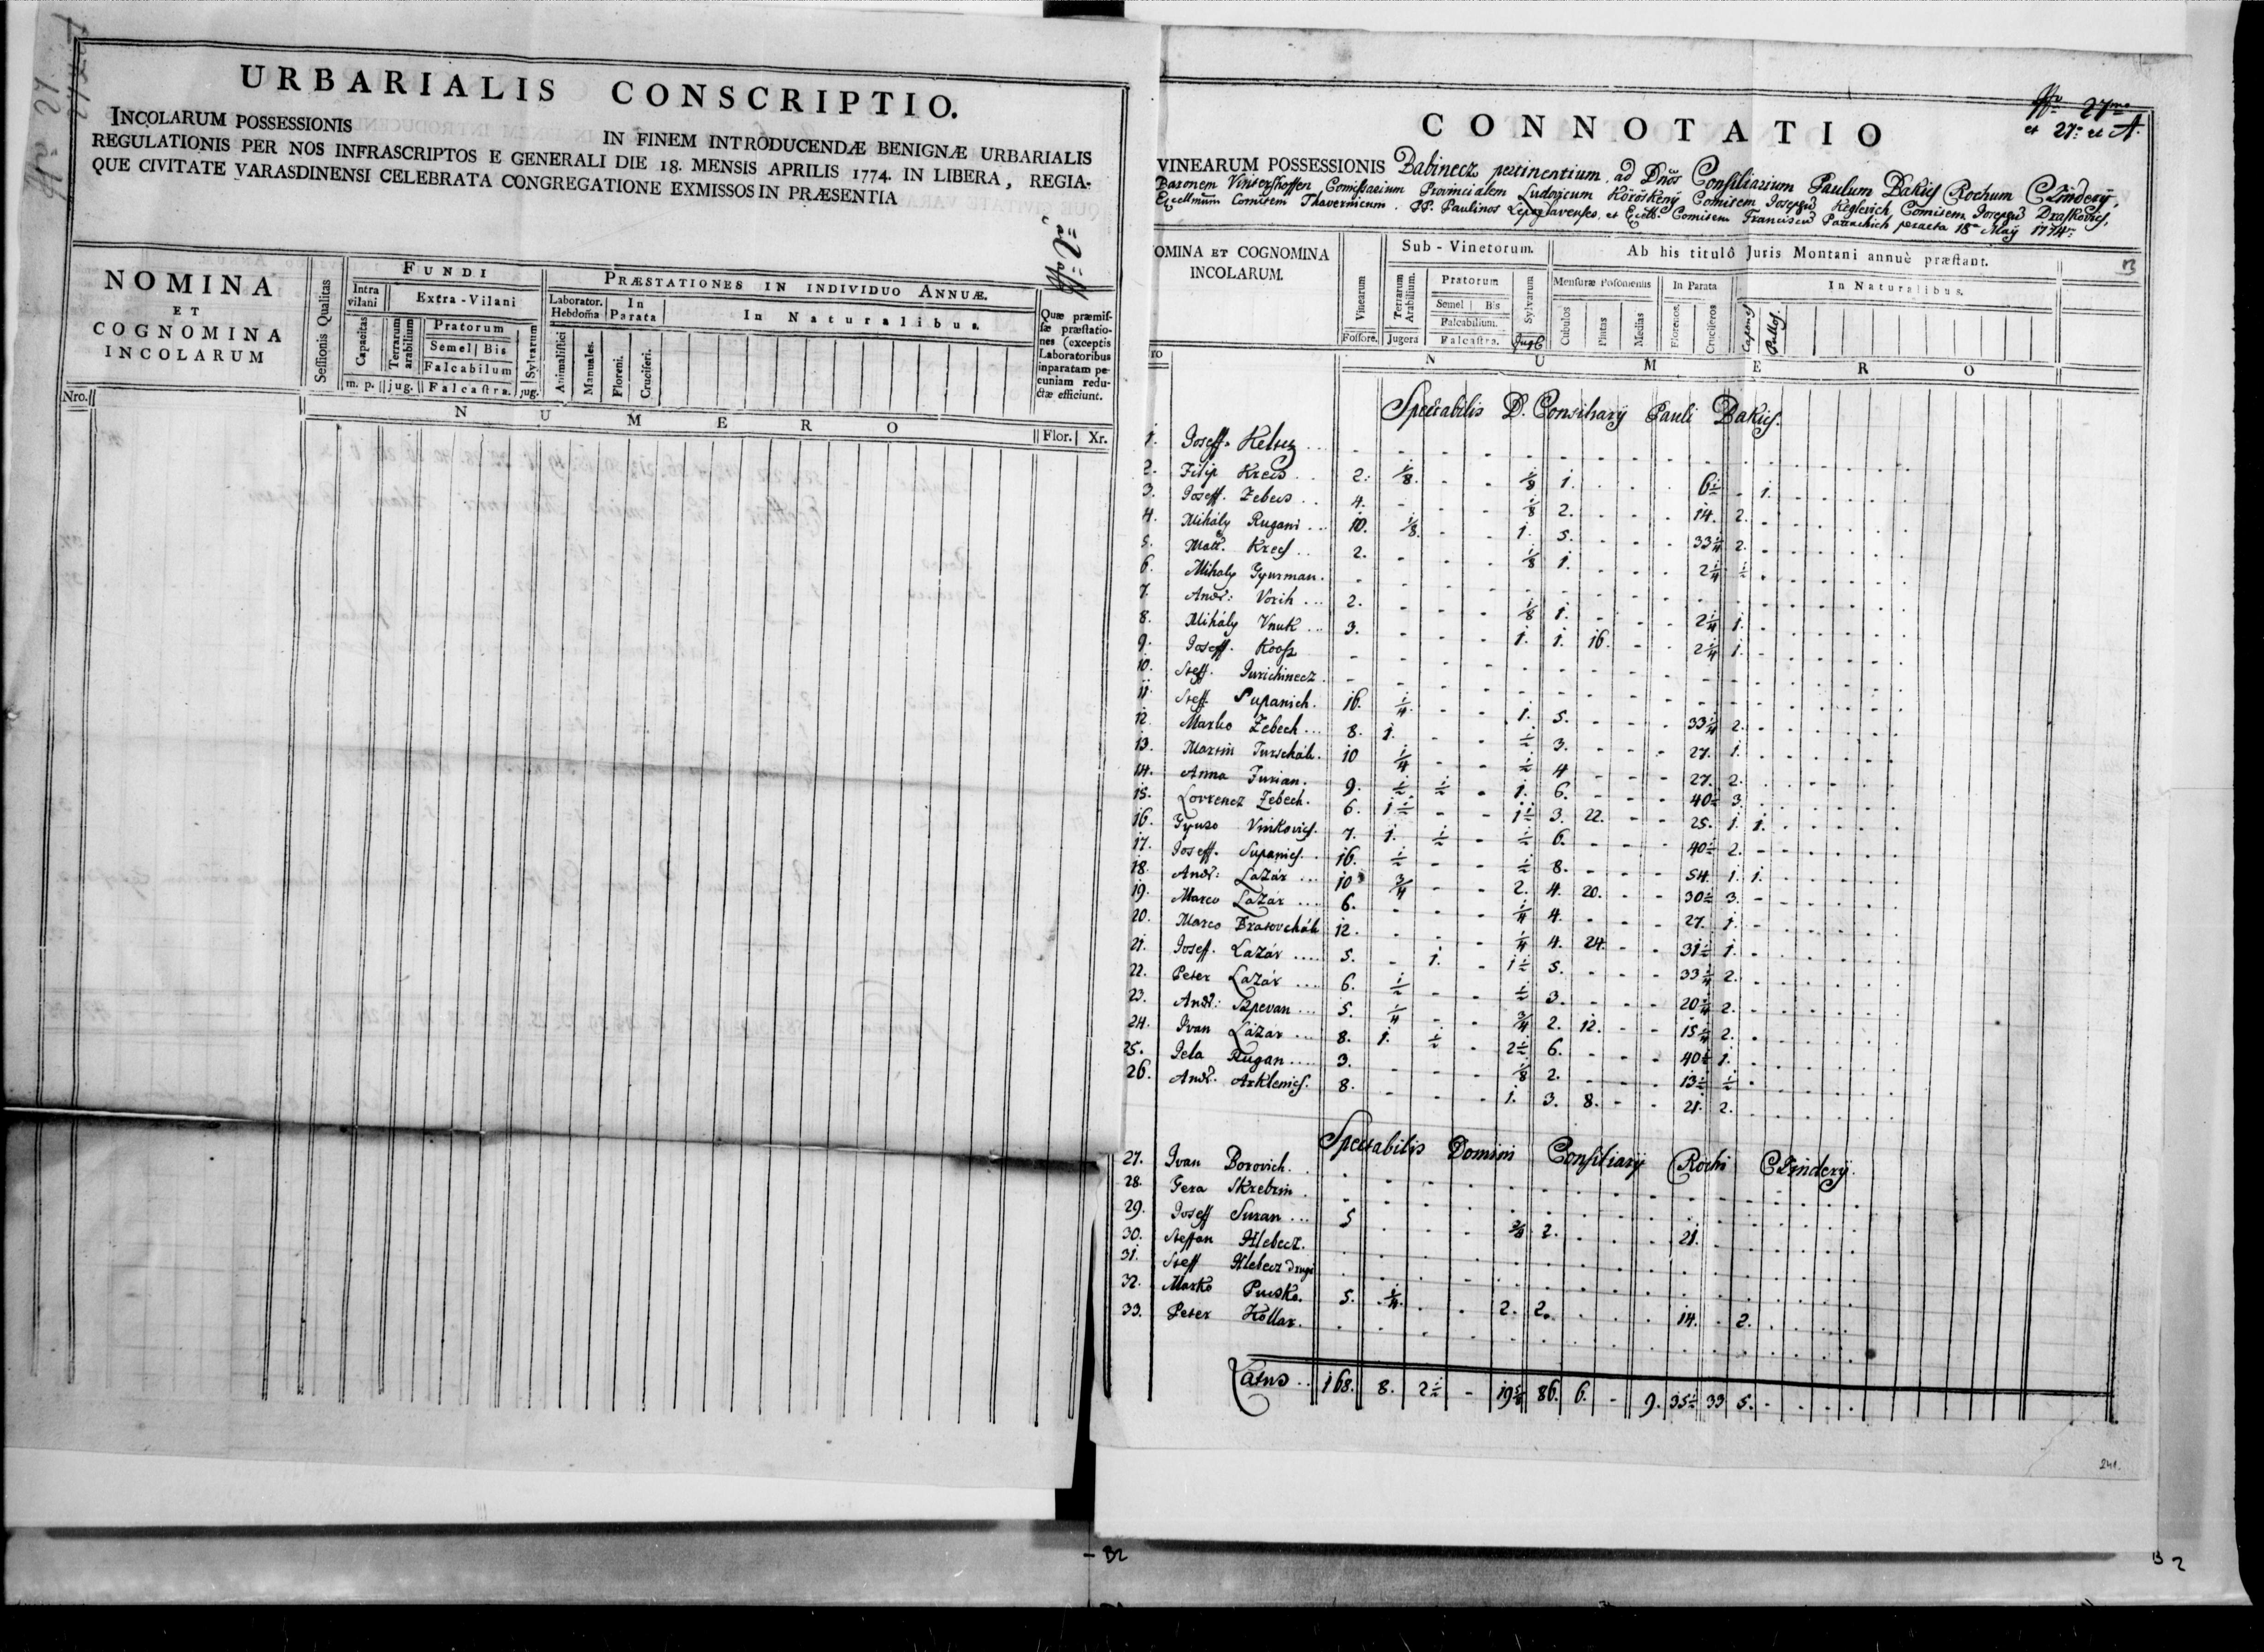 URBARIALIS CONSCRIPTIO.
INCOLARUM POSSESSIONIS IN FINEM INTRODUCENDÆ BENIGNÆ URBARIALIS
REGULATIONIS PER NOS INFRASCRIPTOS E GENERALI DIE 18. MENSIS APRILIS 1774. IN LIBERA, REGIA-
QUE CIVITATE VARASDINENSI CELEBRATA CONGREGATIONE EXMISSOS IN PRÆSENTIA
NOMINA
ET
COGNOMINA
INCOLARUM
Sessionis Qualitas
FUNDI
Intra vilani
Extra-Vilani
Capacitas
Terrarum arabilium
Pratorum
Semel Bis
Falcabilum
Falcastra.
Sylvarum
m. p. jug. jug.
PRÆSTATIONES IN INDIVIDUO ANNUÆ.
Laborator. Hebdoma
In Parata
In Naturalibus.
Animalistici
Manuales.
Floreni.
Cruciferi.
Quæ præmis-
sæ præstatio-
nes (exceptis
Laboratoribus
inparatam pe-
cuniam redu-
ctæ efficiunt.
Nro.
NUMERO
Flor. Xr.
CONNOTATIO
27mo
et 27. et A.
VINEARUM POSSESSIONIS Babinecz pertinentium ad Dnos Consiliarium Paulum Bakics Rochum Czindery,
Baronem Vintershoffen Comissarium Provincialem Ludovicum Köröskény Comitem Josephum Keglevich, Comitem Josephum Draskovics,
Excellmum Comitem Thavernicum. PP. Paulinos Lepoglavenses, et Excell. Comitem Franciscum Patachich peracta 18a May 1774.
OMINA ET COGNOMINA
INCOLARUM.
Vinearum
Fossore.
Sub-Vinetorum.
Terrarum Arabilium.
Jugera
Pratorum
Semel Bis
Falcabilium.
Falcastra.
Sylvarum
Jug
Ab his titulô Juris Montani annuè præstant.
Mensuræ Posoniensis
Cubulos
Pintas
Medias
In Parata
Florenos.
Cruciferos
In Naturalibus.
Capones
Pullos.
NUMERO
Spectabilis D. Consiliarÿ Pauli Bakics.
1. Joseff. Kelecz ...
2. Filip Kreis .. 2. 1/8. - - 1/8 1. . . . 6 1/2 - 1.
3. Joseff. Zebecs .. 4. - - - 1/8 2. . . . 14. 2.
4. Mihály Rugani ... 10. 1/8. - - 1. 5. . . . 33 1/4 2.
5. Matt. Krecs .. 2. - - - 1/8 1. . . . 2 1/4 1/2
6. Mihaly Gyurman.
7. Andr: Vorih ... 2. - - - 1/8 1. - - - 2 1/4 1.
8. Mihály Vnuk ... 3. - - - 1. 1. 16. - - 2 1/4 1.
9. Joseff. Koosz
10. Steff. Jurichinecz
11. Steff. Supanich. 16. 1/4. - - 1. 5. - - - 33 1/4 2.
12. Marko Zebech ... 8. 1. - - 1/2 3. - - - 27. 1.
13. Martin Turschák. 10 1/4 - - 1/2 4 - - - 27. 2.
14. Anna Jurian. 9. 1/2 1/2 - 1. 6. - - - 40 1/2 3.
15. Lovrencz Zebech. 6. 1 1/2 - - 1 1/2 3. 22. - - 25. 1. 1.
16. Gyuro Vinkovics. 7. 1. 1/2 - 1/2 6. - - - 40 1/2 2.
17. Joseff. Supanics. 16. 1/2 - - 1/2 8. - - - 54. 1. 1.
18. Andr: Lazár ... 10 3/4 - - 2. 4. 20. - - 30 1/2 3.
19. Marco Lazár ... 6. - - - 1/4 4. - - - 27. 1.
20. Marco Bratovchák 12. - - - 1/4 4. 24. - - 31 1/2 1.
21. Josef. Lazár .... 5. - 1. - 1 1/2 5. - - - 33 1/4 2.
22. Peter Lazár .... 6. 1/2 - - 1/2 3. - - - 20 1/4 2.
23. Andr: Szpevan ... 5. 1/4 - - 3/4 2. 12. - - 15 1/4 2.
24. Ivan Lázár ... 8. 1. 1/2 - 2 1/2 6. - - - 40 1/2 1.
25. Jela Rugan .... 3. - - - 1/8 2. - - - 13 1/2 1/2
26. Andr. Arklenics. 8. - - - 1. 3. 8. - - 21. 2.
Spectabilis Domini Consiliarÿ Rochi Czinderÿ.
27. Ivan Borovich.
28. Fera Skrebin.
29. Joseff Suran ... 5 . . . 3/8 2. . . . 21.
30. Steffan Hlebecz.
31. Steff Hlebecz drugi
32. Marko Puisko. 5. 1/4. . . 2. 2. . . . 14. . 2.
33. Peter Kollar.
Latus .. 168. 8. 2 1/2 - 19 5/8 86. 6. - 9. 35 1/2 33 5.
241.
B2
B 2